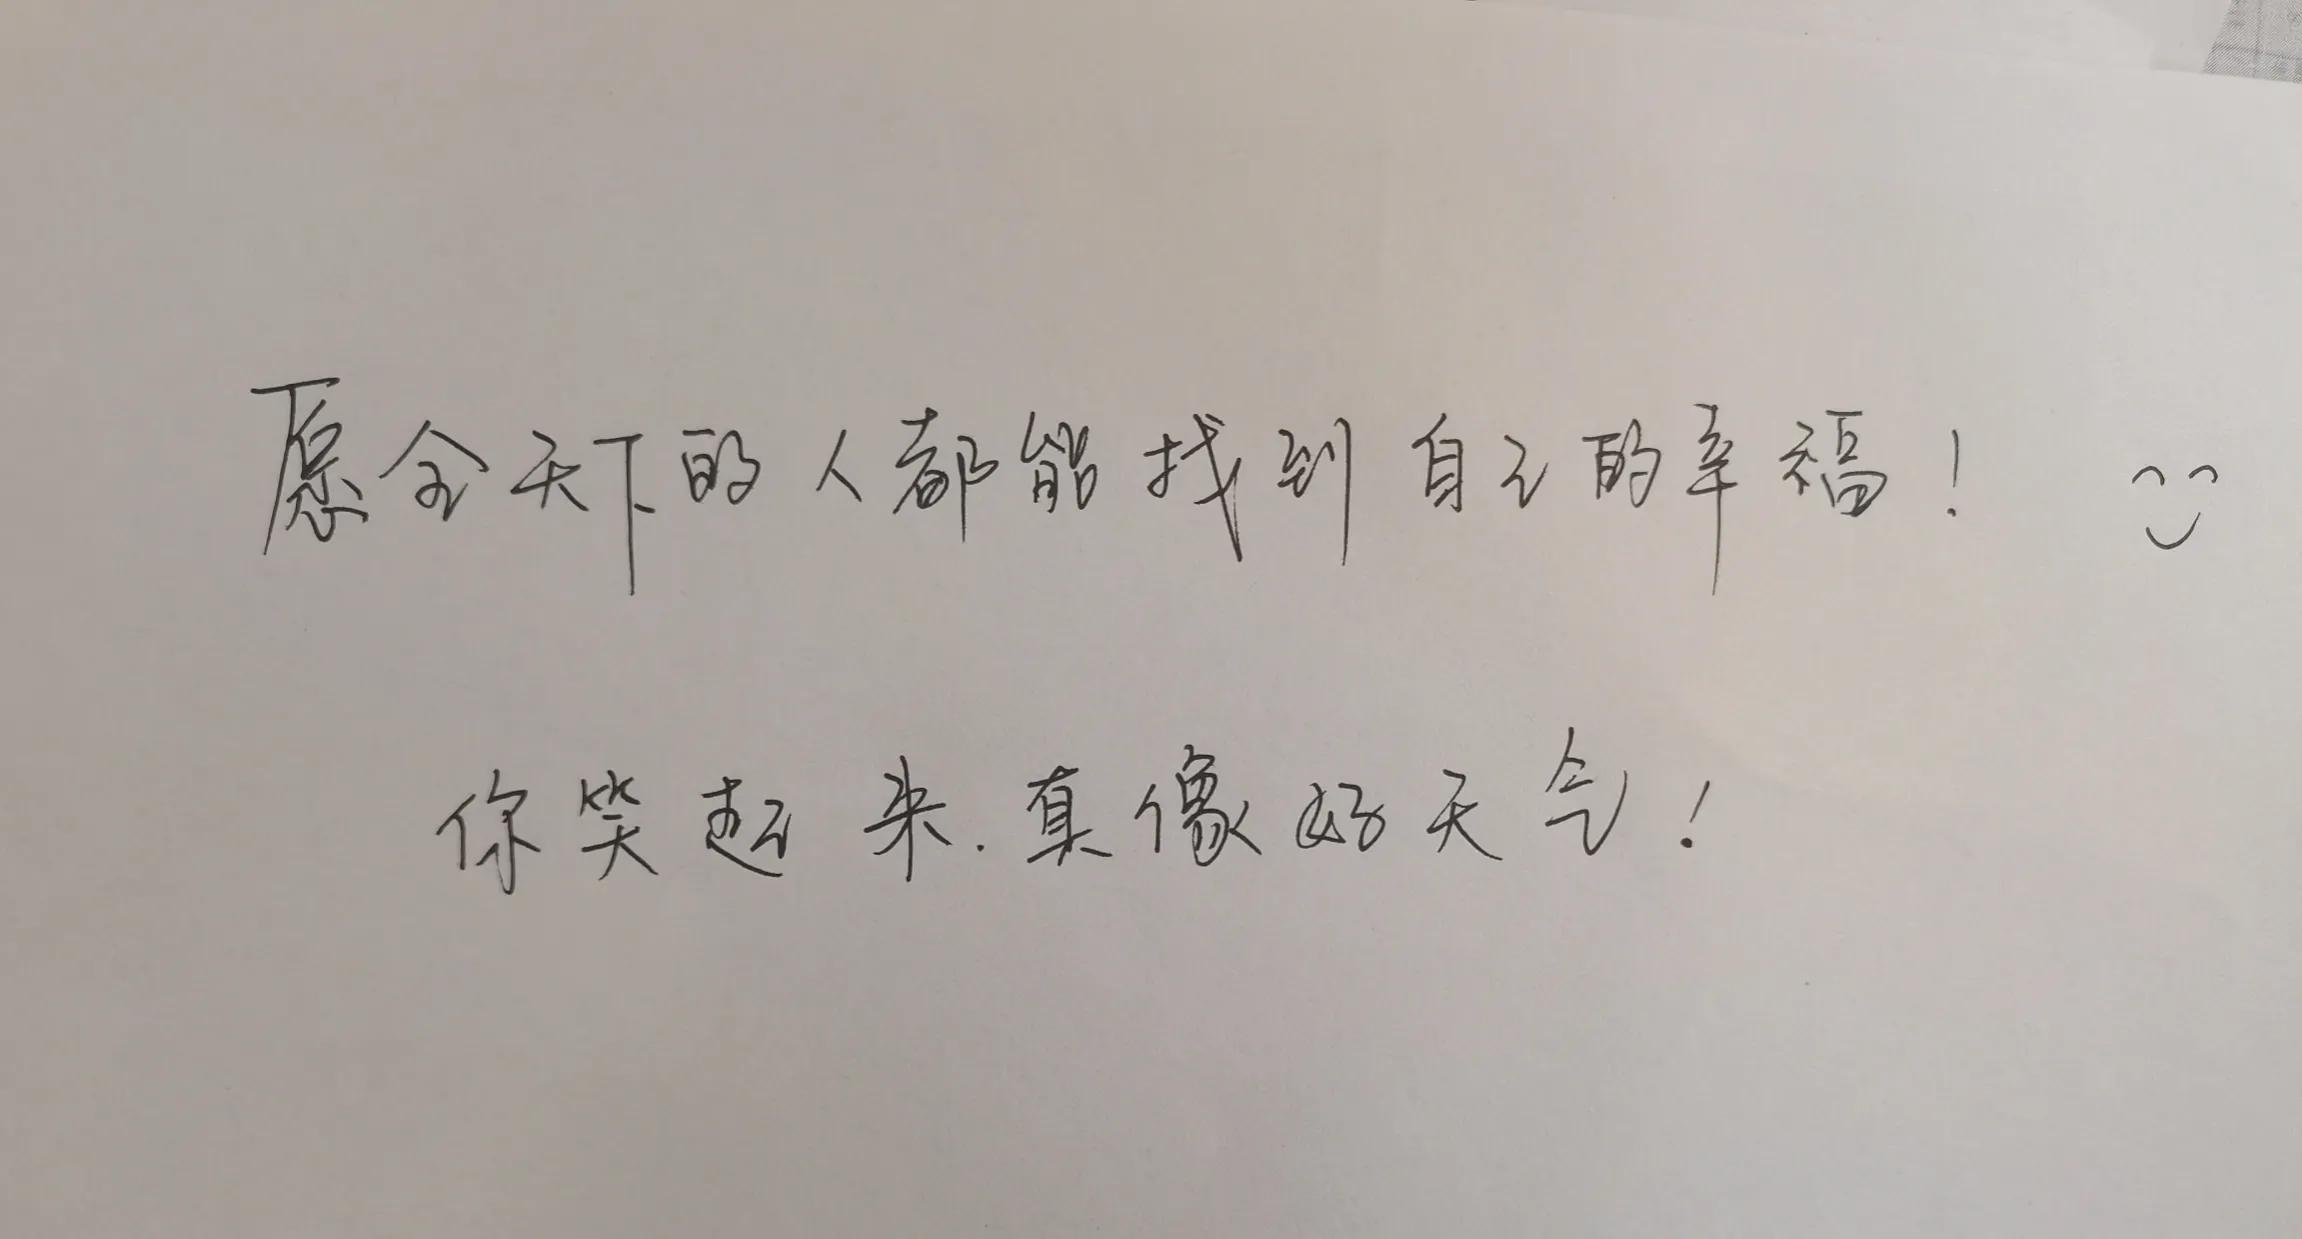 愿全天下的人都能找到自己的幸福！
你笑起来.真像好天气！